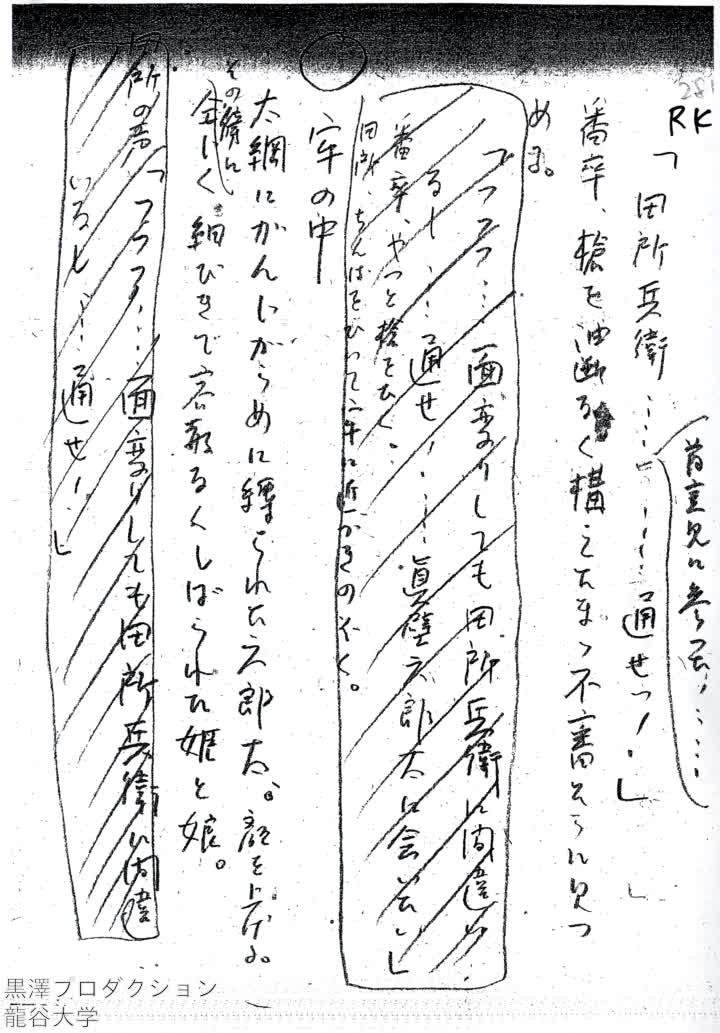 281
RK
「田所兵衛……
首実見に参った!……
……通せっ!」
番卒、槍を油断なく構えたまゝ不審そうに見つ
める。
「フフフ…面変りしても田所兵衛に間違い
なし……通せ!……真壁六郎太に会いたい」
番卒、やっと槍をひく。
田所、ちんばをひいて牢に近づきのぞく。
牢の中
太綱にがんじがらめに縛られた六郎太。顔を上げる。
その隣に
同じく細びきで容赦なくしばられた姫と娘。
田所の声「フフフ……面変りしても田所兵衛に間違
いなし……通せ!」
黒澤プロダクション
龍谷大学